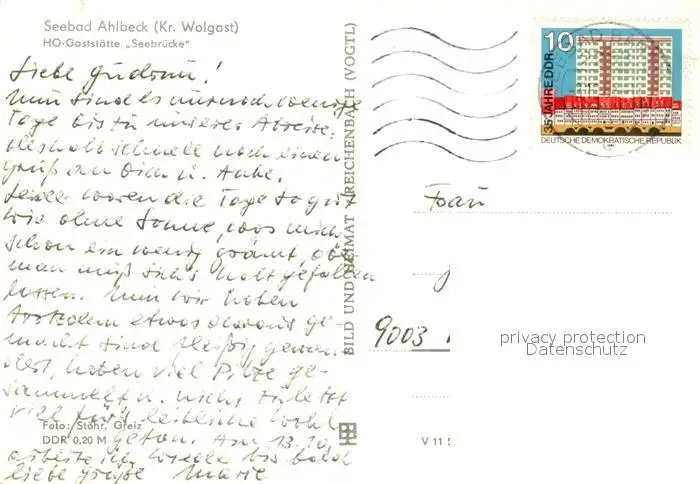 Seebad Ahlbeck (Kr. Wolgast)
HO-Gaststätte „Seebrücke"
Liebe Gudrun!
Nun sind es nur noch wenige
Tage bis zu unserer Abreise,
deshalb schnell noch einen
Gruß an Dich u. Anke.
Leider waren die Tage so gut
wie ohne Sonne, was mich
schon ein wenig grämt, aber
man muß sich's halt gefallen
lassen. Nun wir haben
trotzdem etwas daraus ge-
macht sind fleißig gewan-
dert, haben viel Pilze ge-
sammelt u. nicht zuletzt
viel für's leibliche Wohl
getan. Am 13.10.
arbeite ich wieder bis bald
liebe Grüße Marie
Foto: Stöhr, Greiz
DDR 0,20 M
BILD UND HEIMAT REICHENBACH (VOGTL)
10
35 JAHRE DDR
DEUTSCHE DEMOKRATISCHE REPUBLIK
Frau
9003
privacy protection
Datenschutz
V 11